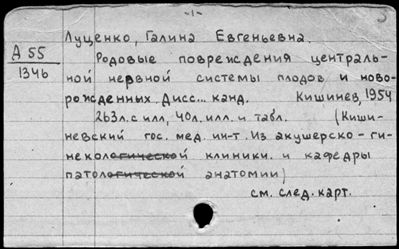 -1-
Луценко, Галина Евгеньевна.
А 55
1346
Родовые повреждения централь-
ной нервной системы плодов и ново-
рожденных. Дисс... канд. Кишинев, 1954
263л. с илл, 40л. илл. и табл. (Киши-
невский гос. мед. ин-т. Из акушерско-ги-
некологической клиники. и кафедры
патологической анатомии)
см. след. карт.